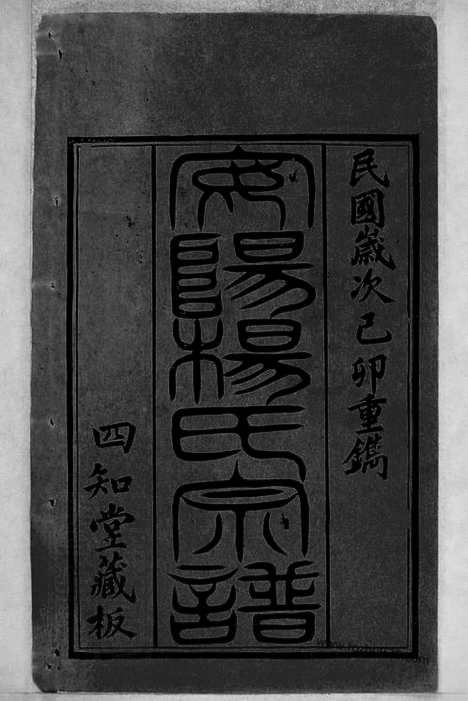 民國歲次己卯重鐫
安陽楊氏宗譜
四知堂藏板